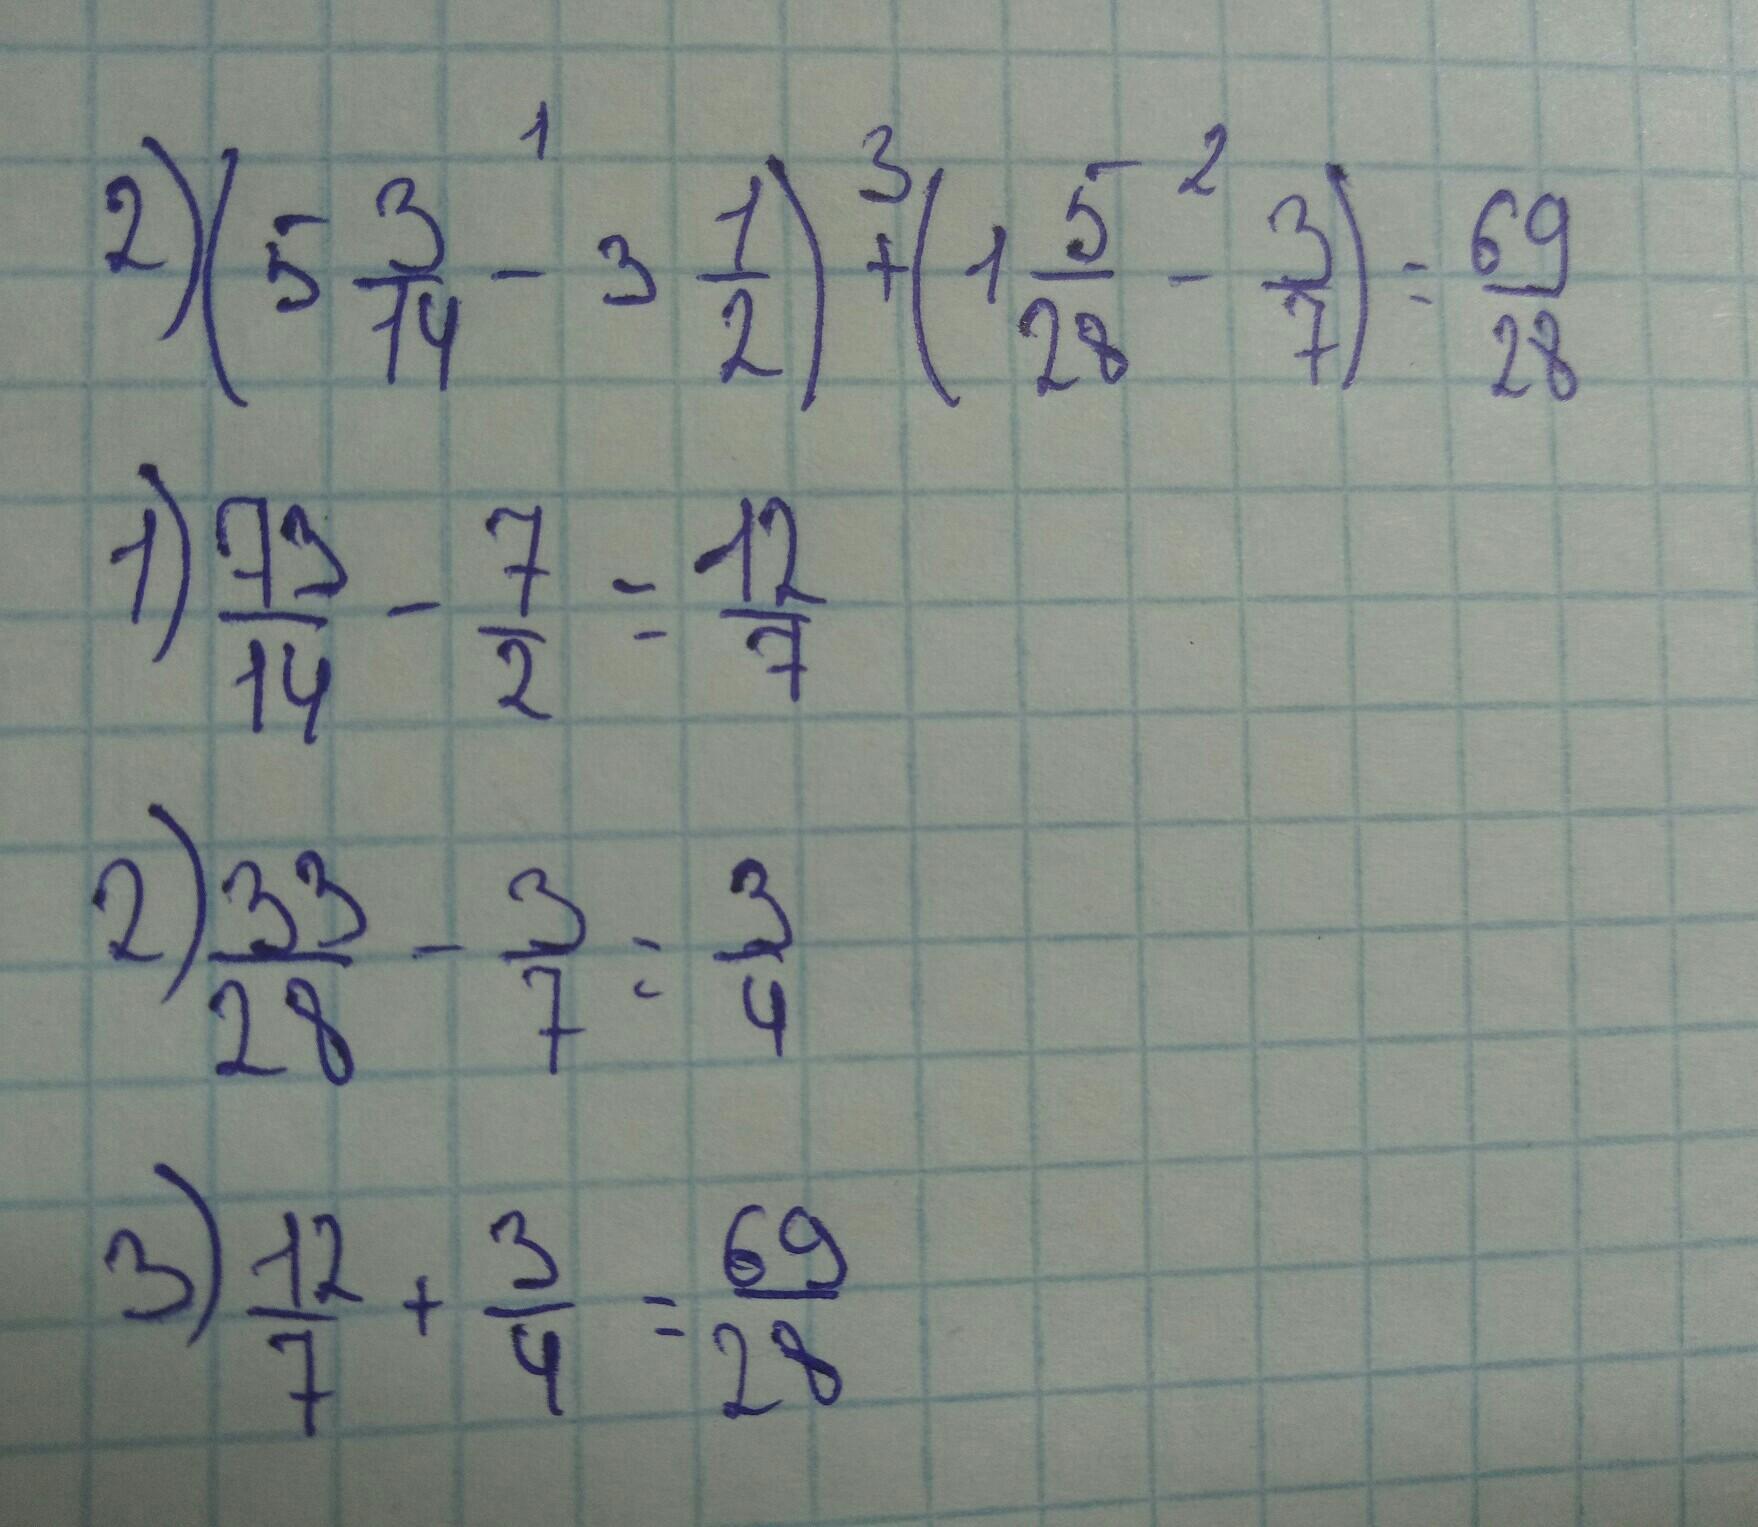 2) (5 3/14 - 3 1/2) + (1 5/28 - 3/7) = 69/28
1 3 2
1) 73/14 - 7/2 = 12/7
2) 33/28 - 3/7 = 3/4
3) 12/7 + 3/4 = 69/28